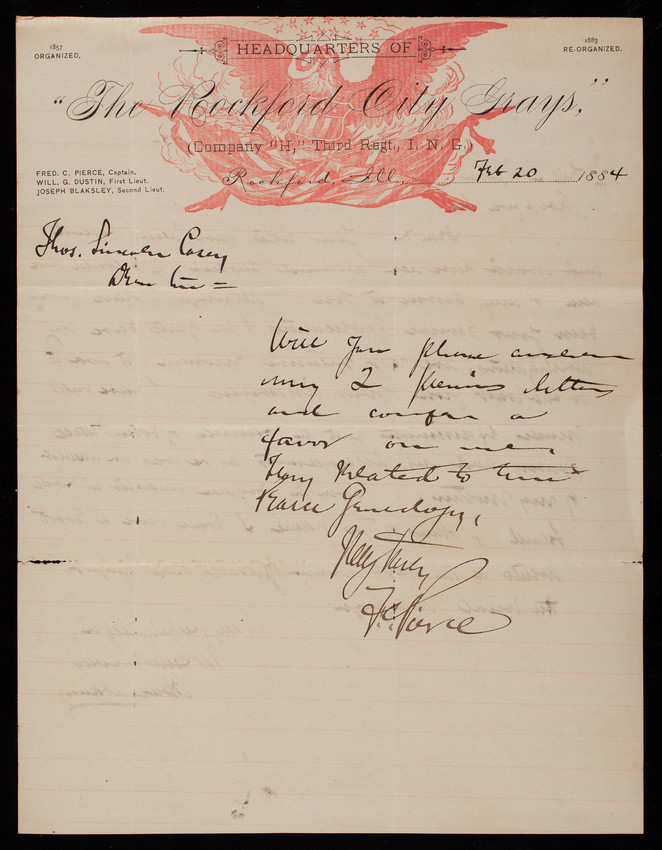 1857
ORGANIZED.
1883
RE-ORGANIZED.
HEADQUARTERS OF
"The Rockford City Grays,"
(Company "H," Third Regt., I. N. G.)
FRED. C. PIERCE, Captain.
WILL. G. DUSTIN, First Lieut.
JOSEPH BLAKSLEY, Second Lieut.
Rockford, Ill., Feb 20 1884
Thos. Lincoln Casey
Dear Sir =
Will you please answer
my 2 previous letters
and confer a
favor on me.
They related to
Genealogy.
Very Truly
F.C. Pierce